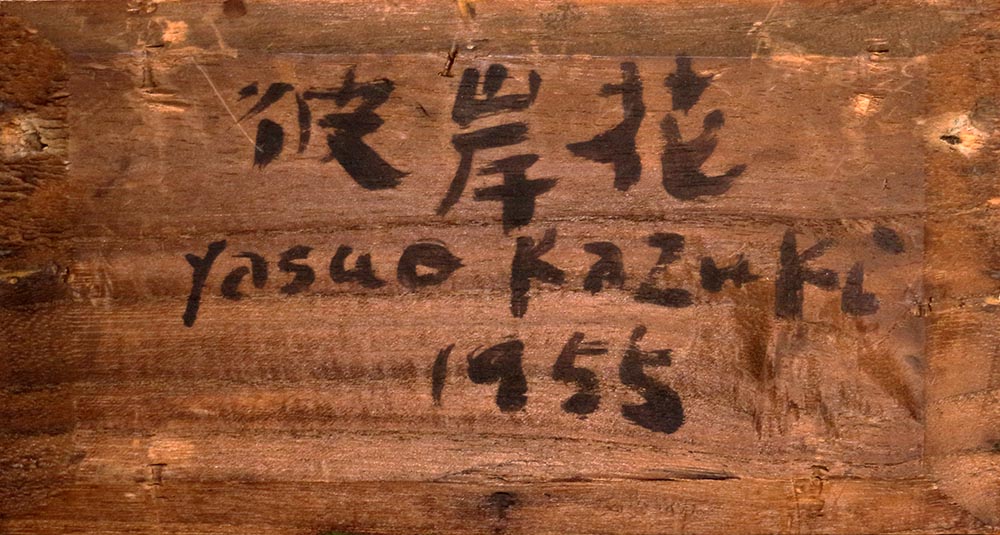 彼岸花
Yasuo Kazuki
1955